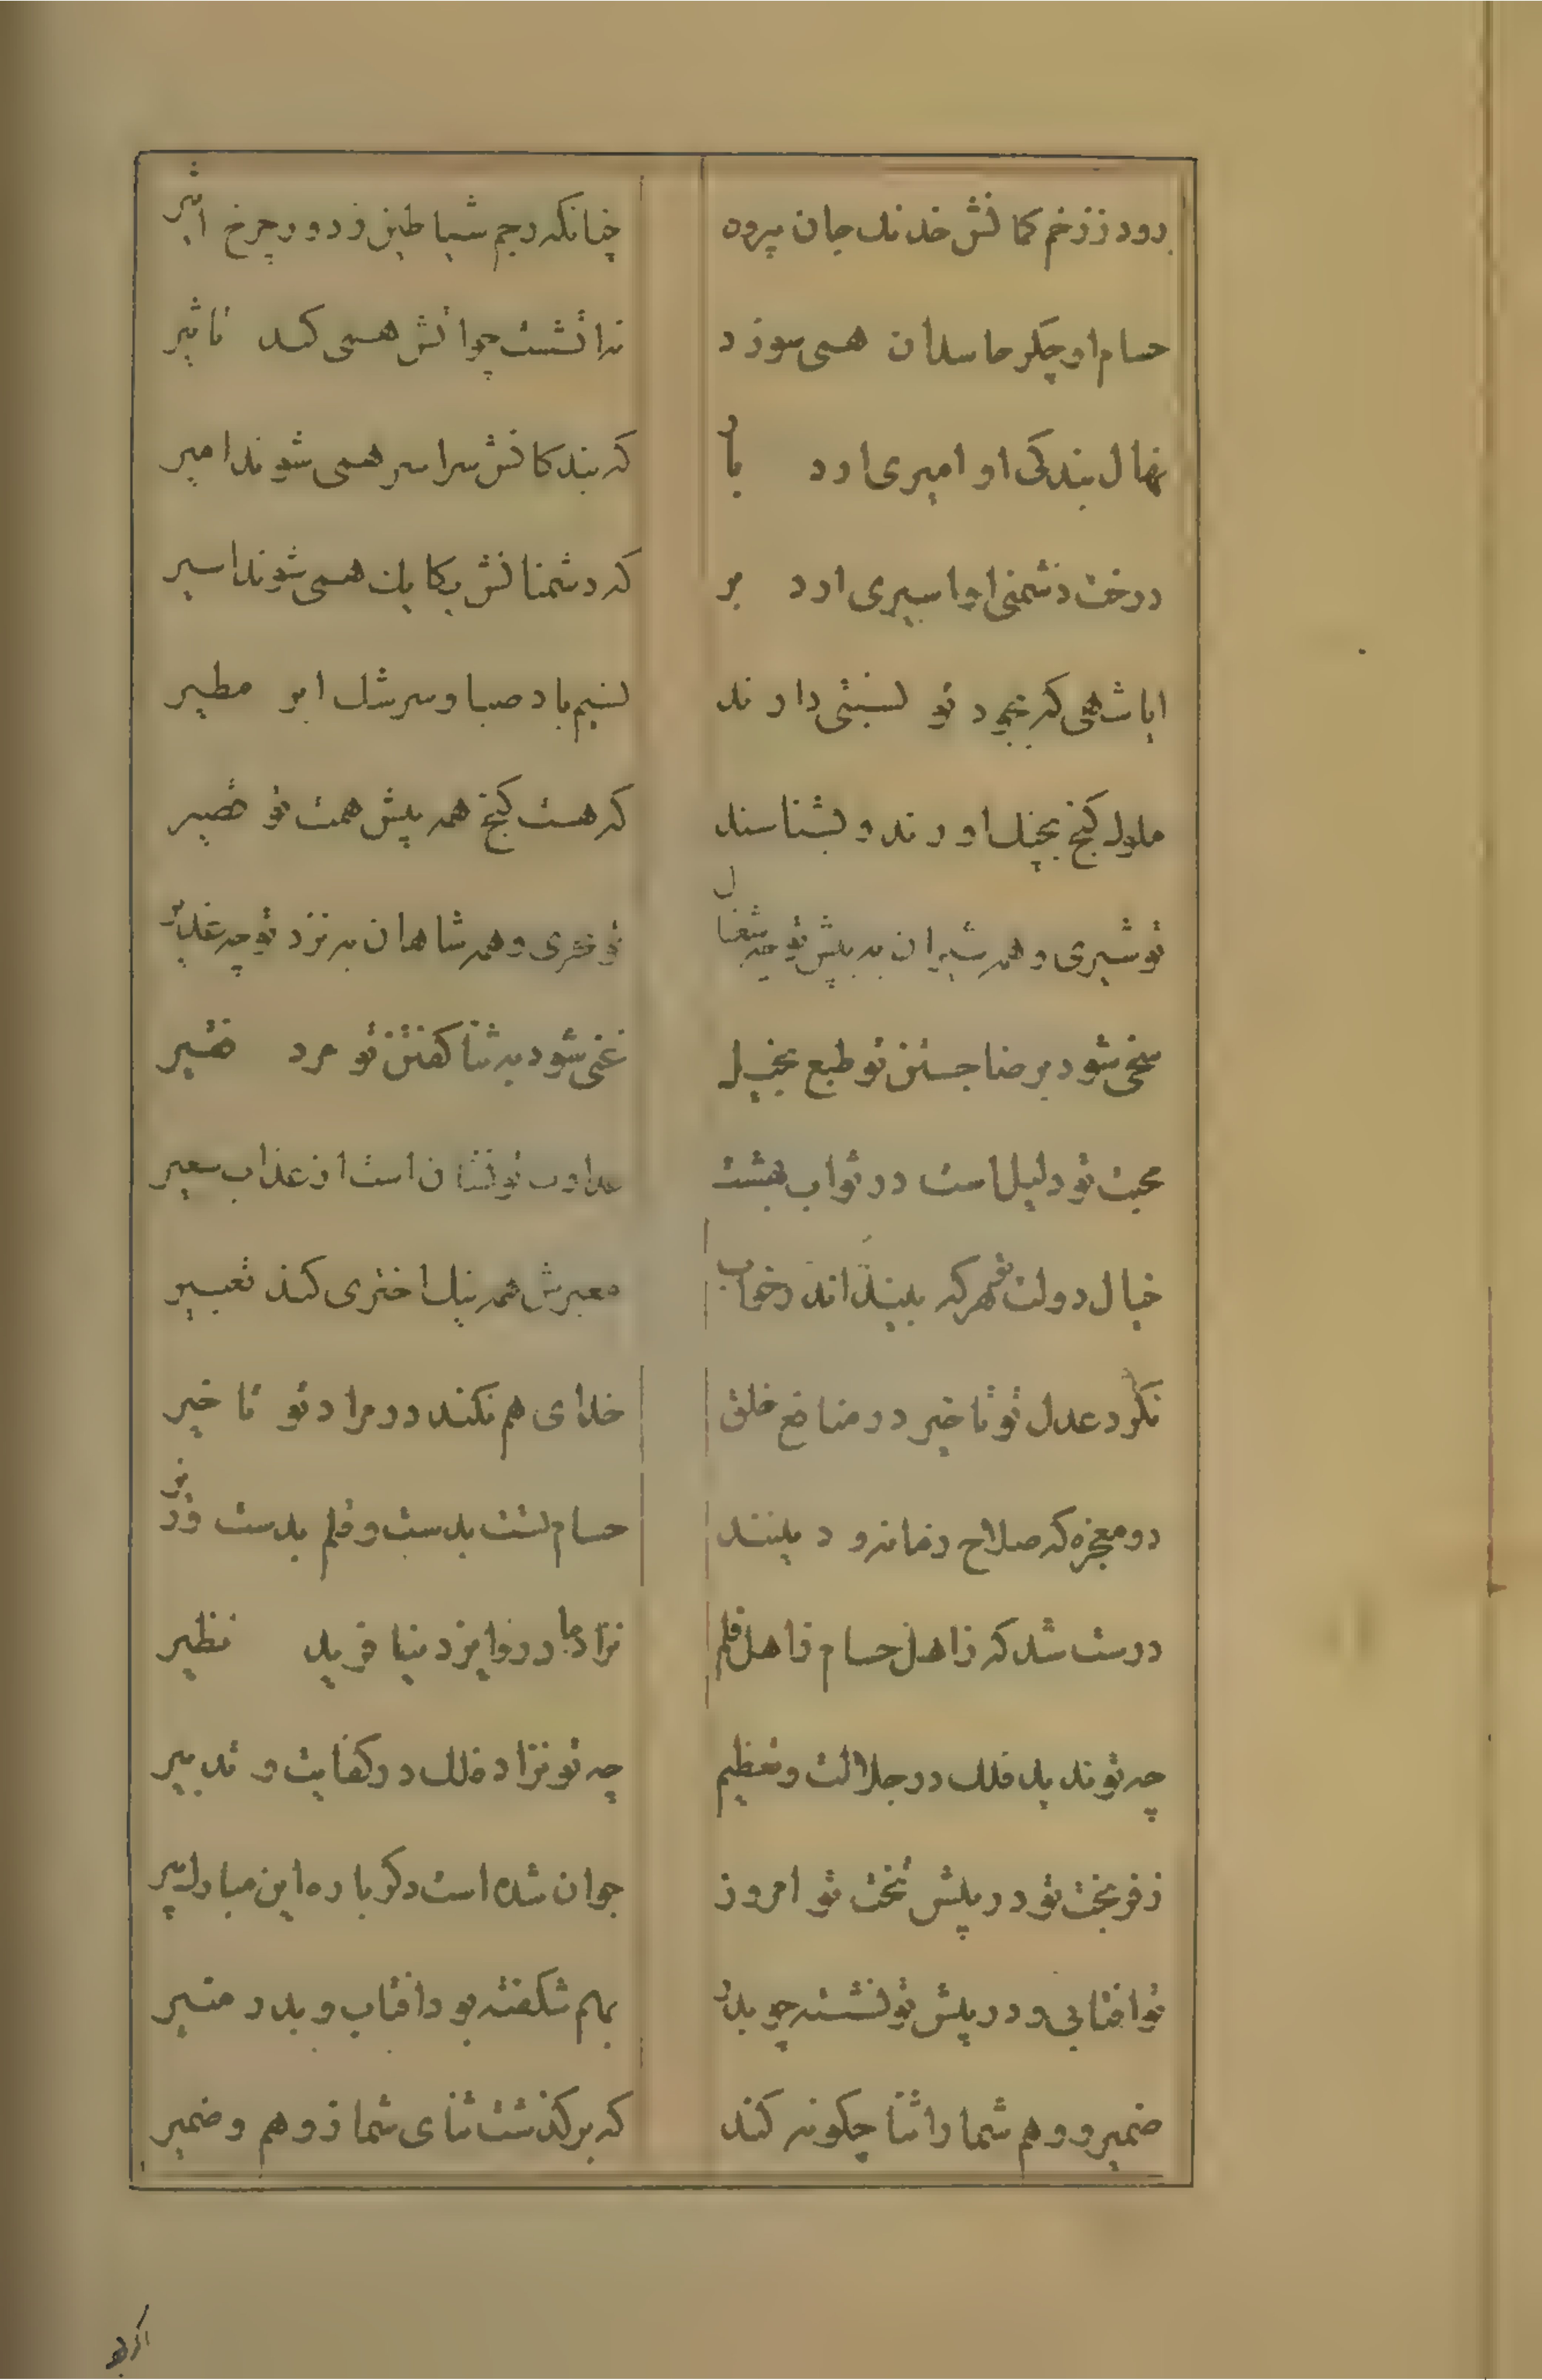 رود ززخم کمانش خدنک جان پرود چنانکه رجم شیاطین ز دور چرخ اثیر
حسام او جکر حاسدان همی سوزد نه اتشست چو اتش همی کند تاثیر
نهال بندکی او امیری ارد بار که بندکانش سراسر همی شوند امیر
درخت دشمنی او اسیری ارد بر که دشمنانش یکایک همی شوند اسیر
ایا شهی که بجود تو نسبتی دارند نسیم باد صبا و سرشک ابر مطیر
ملوک کنج بجنک اورند و نشناسند که هست کنج همه پیش همت تو قصیر
تو شیری و همه شیران به پیش تو چه شغال تو بحری و همه شاهان به نزد تو چه غدیر
سخی شود برضا جستن تو طبع بخیل غنی شود به ثنا کفتن تو مرد فقیر
محبت تو دلیل است در ثواب بهشت عداوت تو نشان است از عذاب سعیر
خیال دولت تو هر که بیند اندر خواب معبرش همه نیک اختری کند تعبیر
نکرد عدل تو تاخیر در منافع خلق خدای هم نکند در مراد تو تاخیر
دو معجزه که صلاح زمانه در بینند حسام تست بدست و قلم بدست وزیر
درست شد که زاهل حسام زاهل قلم نزاد مادر و ایزد نیافرید نظیر
چه تو ندید فلک در جلالت و تعظیم چه تو نزاد فلک در کفایت و تدبیر
ز فر بخت تو در پیش تخت تو امروز جوان شده است دکرباره این مبارک پیر
تو افتابی و در پیش تو نشسته چو بدر بهم شکفته بود افتاب و بدر منیر
ضمیر و وهم شما را ثنا چکونه کند که برکذشت ثنای شما ز وهم و ضمیر